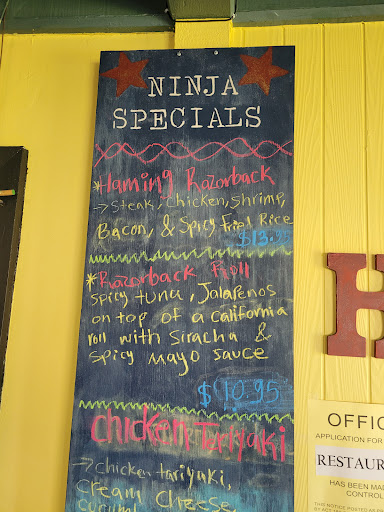 NINJA
SPECIALS
*Flaming Razorback
→ steak, chicken, shrimp,
Bacon, & Spicy Fried Rice
$13.95
*Razorback Roll
spicy tuna, Jalapenos
on top of a california
roll with siracha &
spicy mayo sauce
$10.95
chicken Tariyaki
→ chicken tariyaki,
cream cheese,
H
OFFIC
APPLICATION FOR
RESTAUR
HAS BEEN MA
CONTROL
THIS NOTICE POSTED